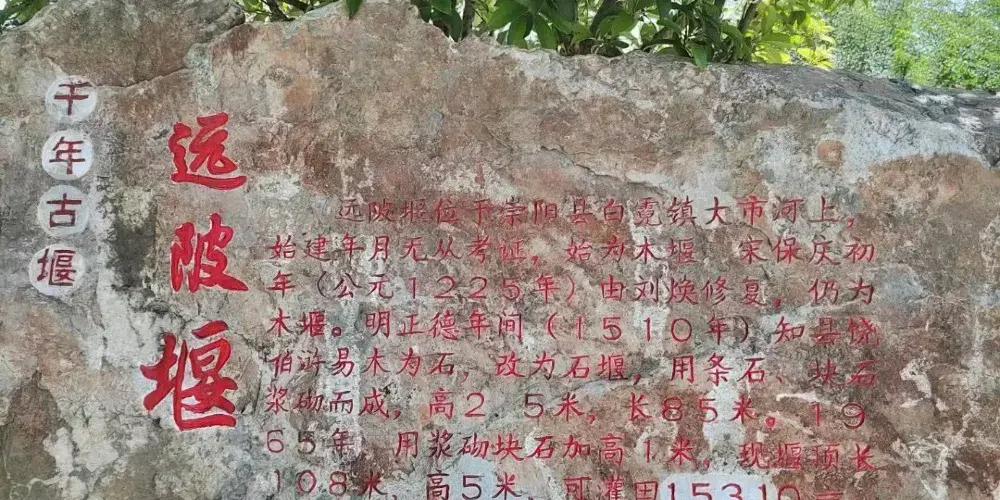 千年古堰
远陂堰
远陂堰位于崇阳县白霓镇大市河上，
始建年月无从考证，始为木堰 宋保庆初
年（公元1225年）由刘焕修复，仍为
木堰。明正德年间（1510年）知县饶
伯浒易木为石，改为石堰，用条石、块石
浆砌而成，高2 5米，长85米。19
65年 用浆砌块石加高1米，现堰顶长
108米，高5米，可灌田15310